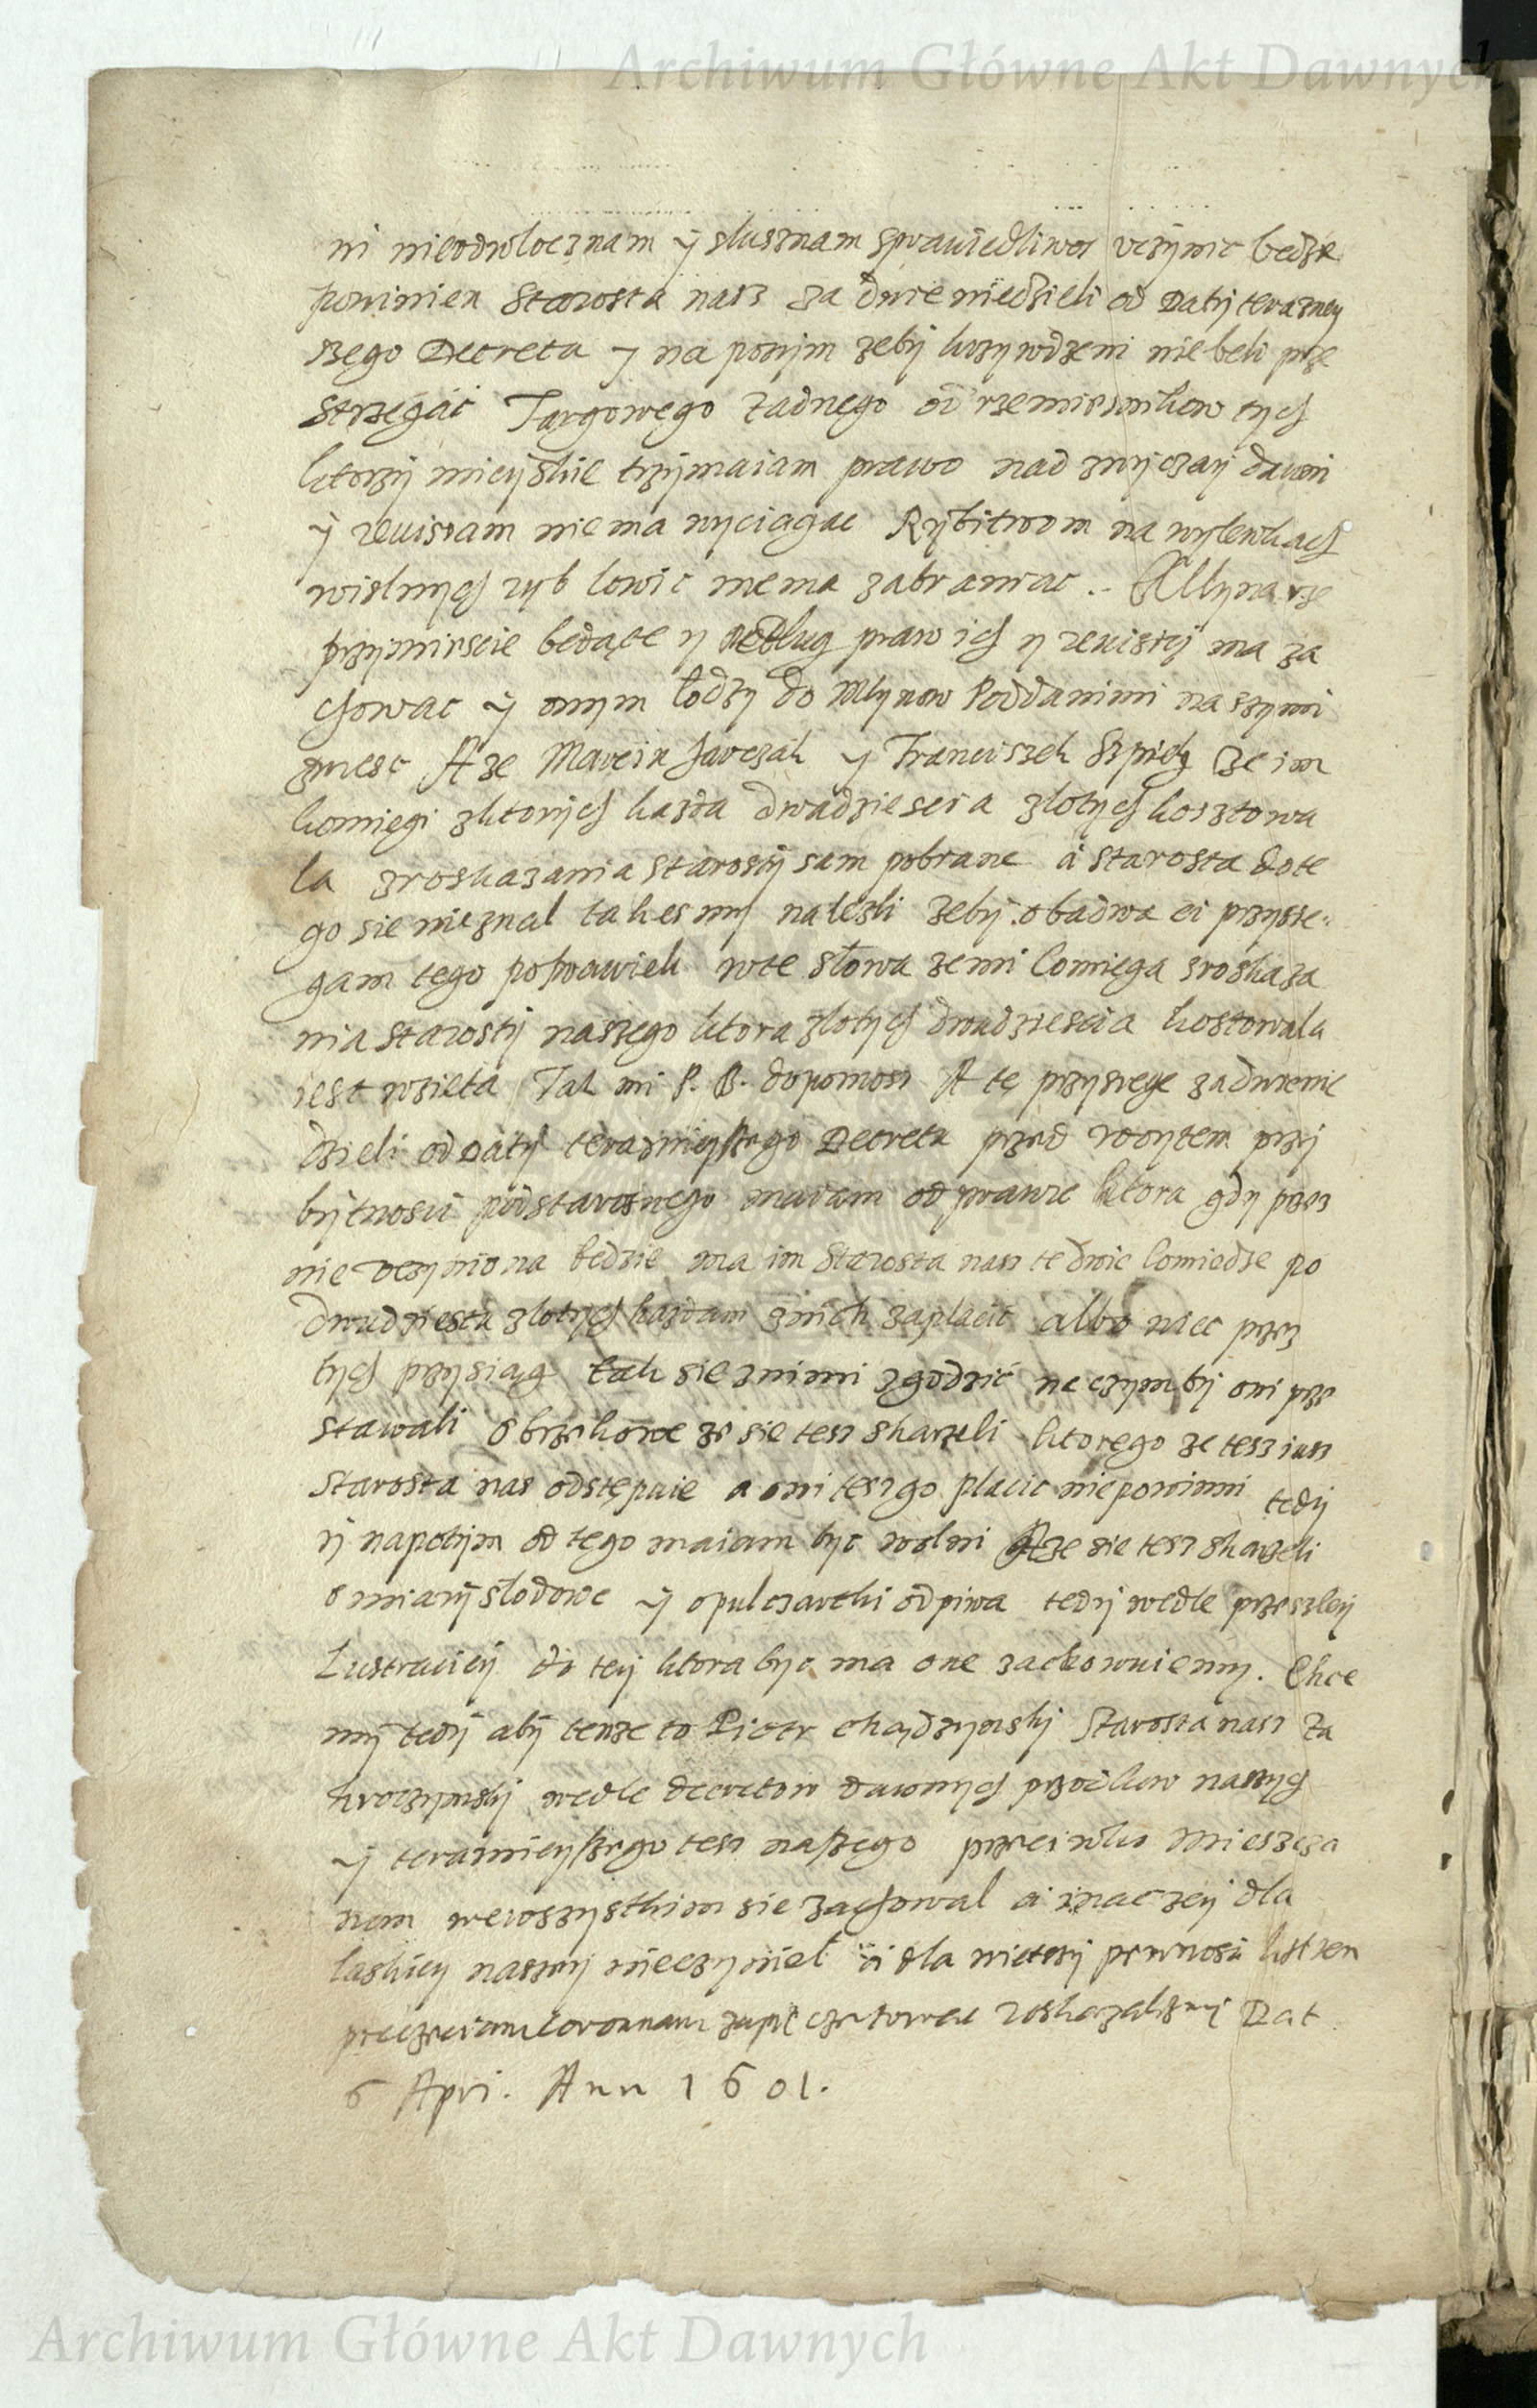 Archiwum Główne Akt Dawnych
ni nieodwlocznam ÿ slusznam sprawiedliwos vczÿnic bedzie
powinien Starosta nasz za dwie niedzieli od Datÿ terazney
szego Decreta y na potÿm zebÿ krzywdzeni nie beli prze
strzegać Targowego zadnego od rzemiesnikow tych
ktorzÿ mieÿskie trzÿmaiam prawo nad zwyczaÿ dawni
ÿ rewisiam nie ma wyciągac Rÿbitwom na wylewkach
wislnych ryb lowic nie ma zabraniac .. Mlynarze
przÿ miescie będące y wedlug praw ich y rewisiÿ ma za
chowac ÿ onym łodzy do Mlynow Poddanimi naszymi
zniesc A ze Marcin Jarczak y Franciszek Szpieg ze im
komięgi z ktorÿch kazda dwadziescia zlotÿch kosztowa
la z roskazania starostÿ sam pobrane a starosta do te
go sie nie znal takesmy nalezli zebÿ obadwa ci przysie
gam tego poprawieli w te słowa ze mi komiega z roskaza
nia starostÿ naszego ktora zlotych dwudziescia kostowala
iest wzieta Tak mi P. B. dopomosz A tę przysiege za dwie nie
dzieli od datÿ teraznieÿszego Decreta przed Woytem przÿ
bÿtnosci podstarosciego maiam odprawic ktora gdy przes
nie vczyniona bedzie ma im Starosta nasz te dwie komiedze po
dwudziestu zlotÿch kazdam z nich zaplacic albo wiec przez
tych przysiąg tak sie z nimi zgodzić na czym bÿ oni prze
stawali O brzekowe ze sie tesz skarzeli ktorego ze tesz iusz
Starosta nas odstępuie a oni tesz go placic nie powinni tedÿ
ÿ napotÿm od tego maiam byc wolni A ze sie tesz skarzeli
o miarÿ słodowe ÿ o pulczwartki od piwa tedÿ wedle przeszleÿ
Lustracieÿ do teÿ ktora byc ma one zachowuiemy. Chce
mÿ tedÿ abÿ tenze to Piotr chądzynskÿ Starosta nasz Za
kroczymskÿ wedle decretow dawnych przodkow naszych
ÿ teraznieÿszego tesz naszego przeciwko Mieszcza
nom we wszystkim sie zachowal a inaczeÿ dla
laskiey naszey nie czyniel a dla wietszÿ pewnosci list ten
pieczeciam coronnam zapieczetowac roskazalismÿ Dat
6 Apri. Ann 1601.
Archiwum Główne Akt Dawnych